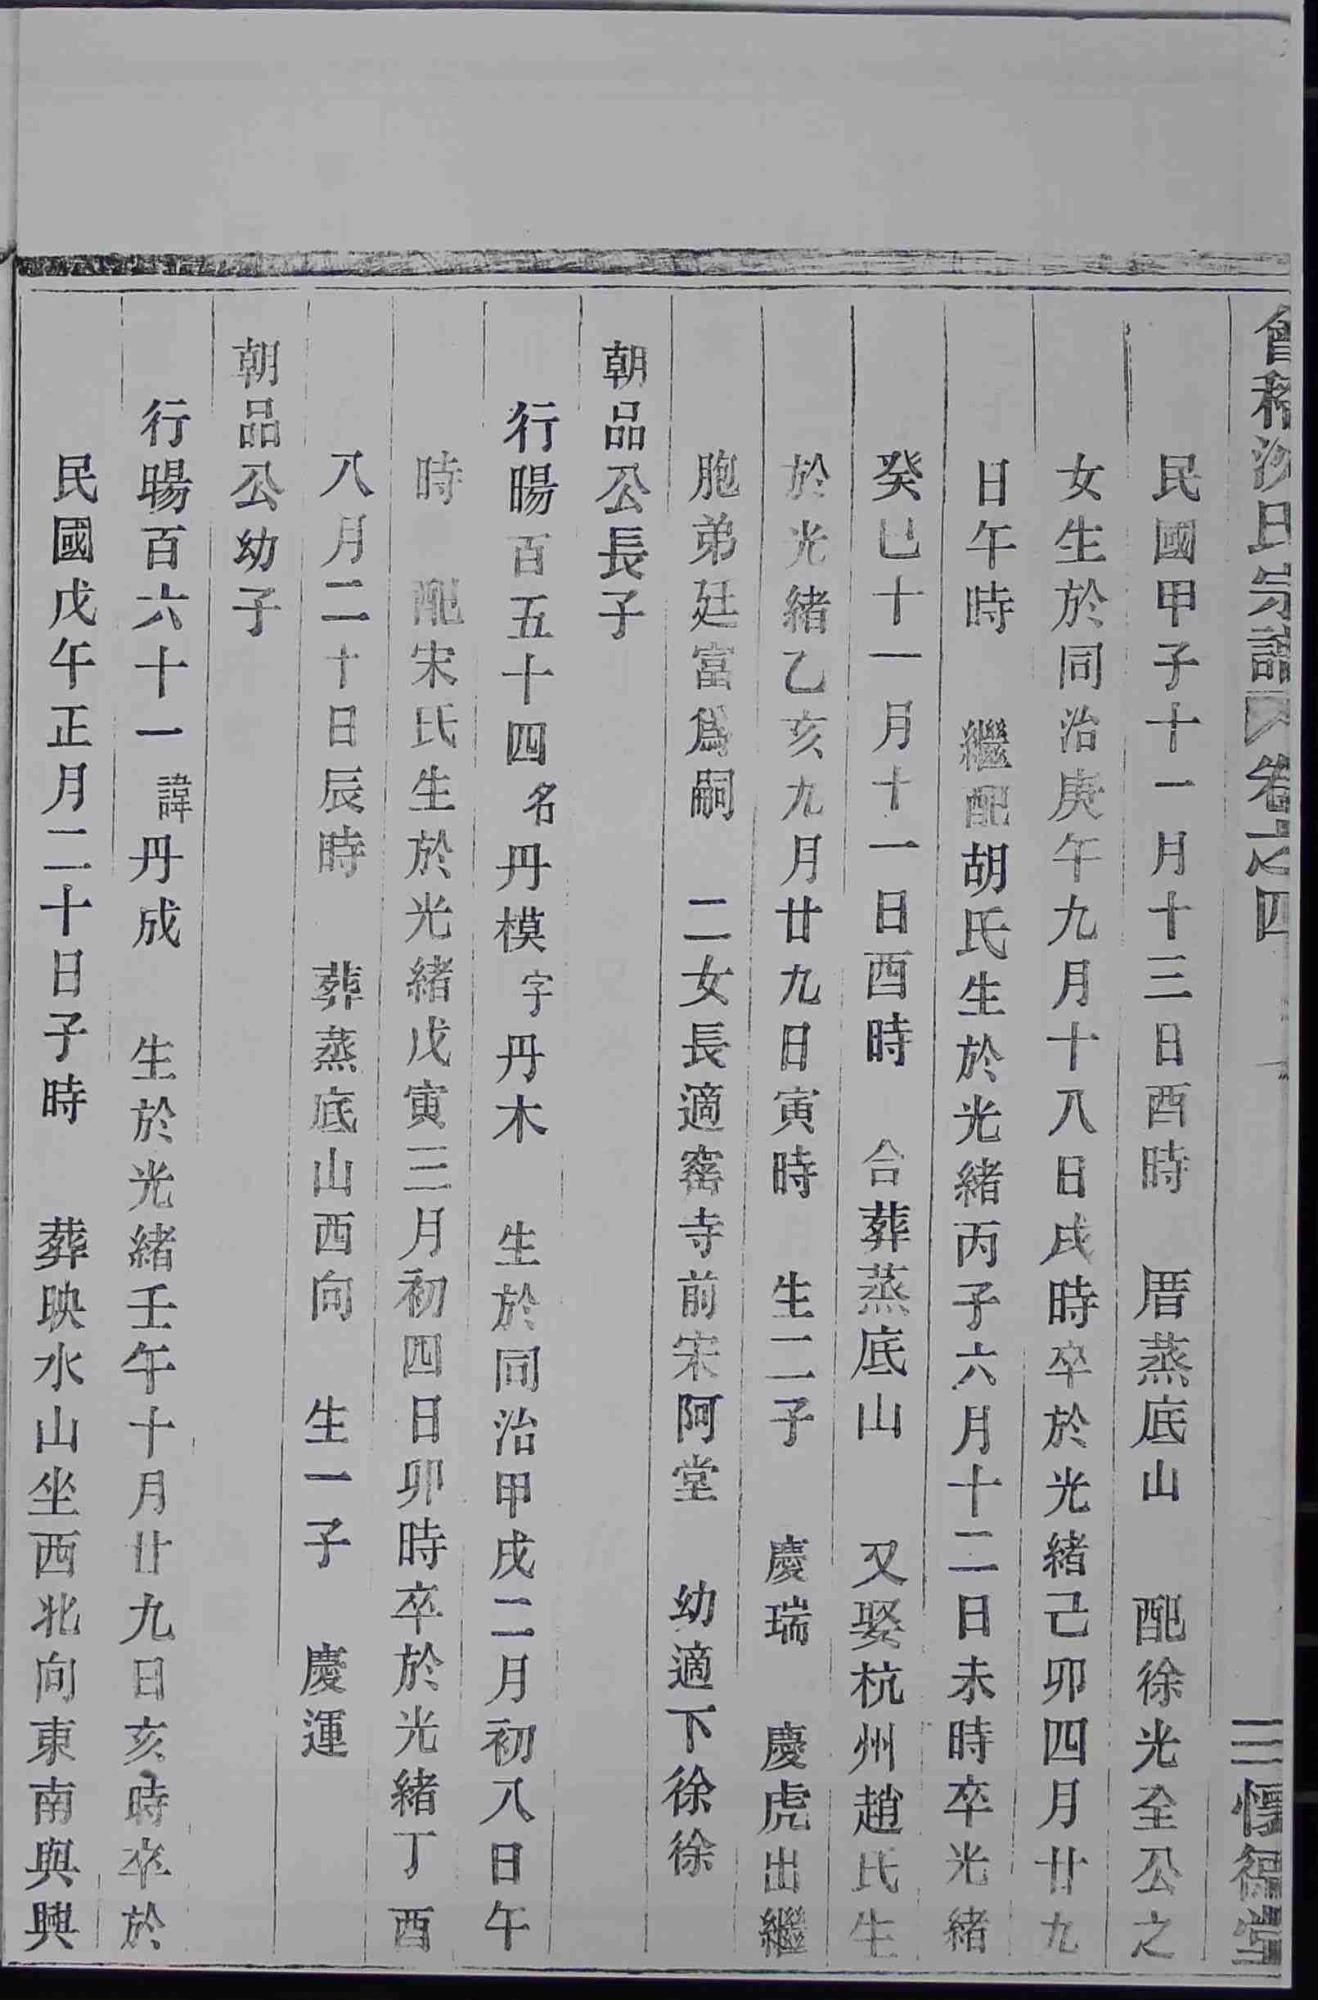 會稽沈氏宗譜 卷之四 三 惇德堂
民國甲子十一月十三日酉時 厝蒸底山 配徐光全公之
女生於同治庚午九月十八日戌時卒於光緒己卯四月廿九
日午時 繼配胡氏生於光緒丙子六月十二日未時卒光緒
癸巳十一月十一日酉時 合葬蒸底山 又娶杭州趙氏生
於光緒乙亥九月廿九日寅時 生二子 慶瑞 慶虎出繼
胞弟廷富爲嗣 二女長適窰寺前宋阿堂 幼適下徐徐
朝品公長子
行暘百五十四名丹模字丹木 生於同治甲戌二月初八日午
時 配宋氏生於光緒戊寅三月初四日卯時卒於光緒丁酉
八月二十日辰時 葬蒸底山西向 生一子 慶運
朝品公幼子
行暘百六十一諱丹成 生於光緒壬午十月廿九日亥時卒於
民國戊午正月二十日子時 葬映水山坐西北向東南與興